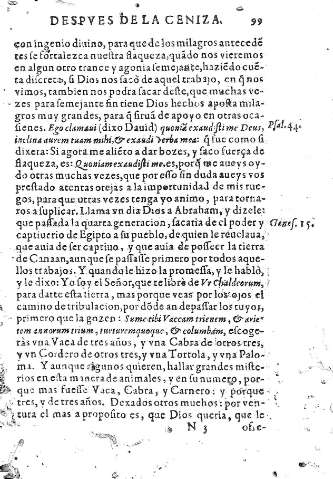 DESPVES DE LA CENIZA. 99
con ingenio diuino, para que de los milagros antecedẽ
tes se fortalezca nuestra flaqueza, quãdo nos vieremos
en algun otro trance y agonia semejante, haziẽdo cuẽ
ta discreta, si Dios nos sacò de aquel trabajo, en q̃ nos
vimos, tambien nos podra sacar deste, que muchas ve-
zes para semejante fin tiene Dios hechos aposta mila-
gros muy grandes, para q̃ sirua de apoyo en otras oca-
siones. Ego clamaui (dixo Dauid) quoniã exaudisti me Deus, Psal. 44.
inclina aurem tuam mihi, & exaudi verba mea: q̃ fue como si
dixera: Si agora me aliẽto a dar bozes, y saco fuerça de
flaqueza, es: Quoniam exaudisti me. es, porq̃ me aueys oy-
do otras muchas vezes, que por esso sin duda aueys vos
prestado atentas orejas a la importunidad de mis rue-
gos, para que otras vezes tenga yo animo, para torna-
ros a suplicar. Llama vn diz Dios a Abraham, y dizele:
que passada la quarta generacion, sacaria del poder y Genes. 15.
captiuerio de Egipto a su pueblo, de quien le reuelaua,
que auia de ser captiuo, y que auia de posseer la tierra
de Canaan, aunque se passasse primero por todos aque-
llos trabajos. Y quando le hizo la promessa, y le hablò,
y le dixo: Yo soy el Señor, que te librè de Vr Chaldeorum,
para darte esta tierra, mas porque veas por los ojos el
camino de tribulacion, por dõde an de passar los tuyos,
primero que la gozen: Sume tibi Vaccam trienem, & arie-
tem annorum trium, turturem quoque, & columbam, escoge-
ràs vna Vaca de tres años, y vna Cabra de otros tres,
y vn Cordero de otros tres, y vna Tortola, y vna Palo-
ma. Y aunque algunos quieren, hallar grandes miste-
rios en esta manera de animales, y en su numero, por-
que mas fuesse Vaca, Cabra, y Carnero: y porque
tres, y de tres años. Dexados otros muchos: por ven-
tura el mas a proposito es, que Dios queria, que le
N 3 ofre-